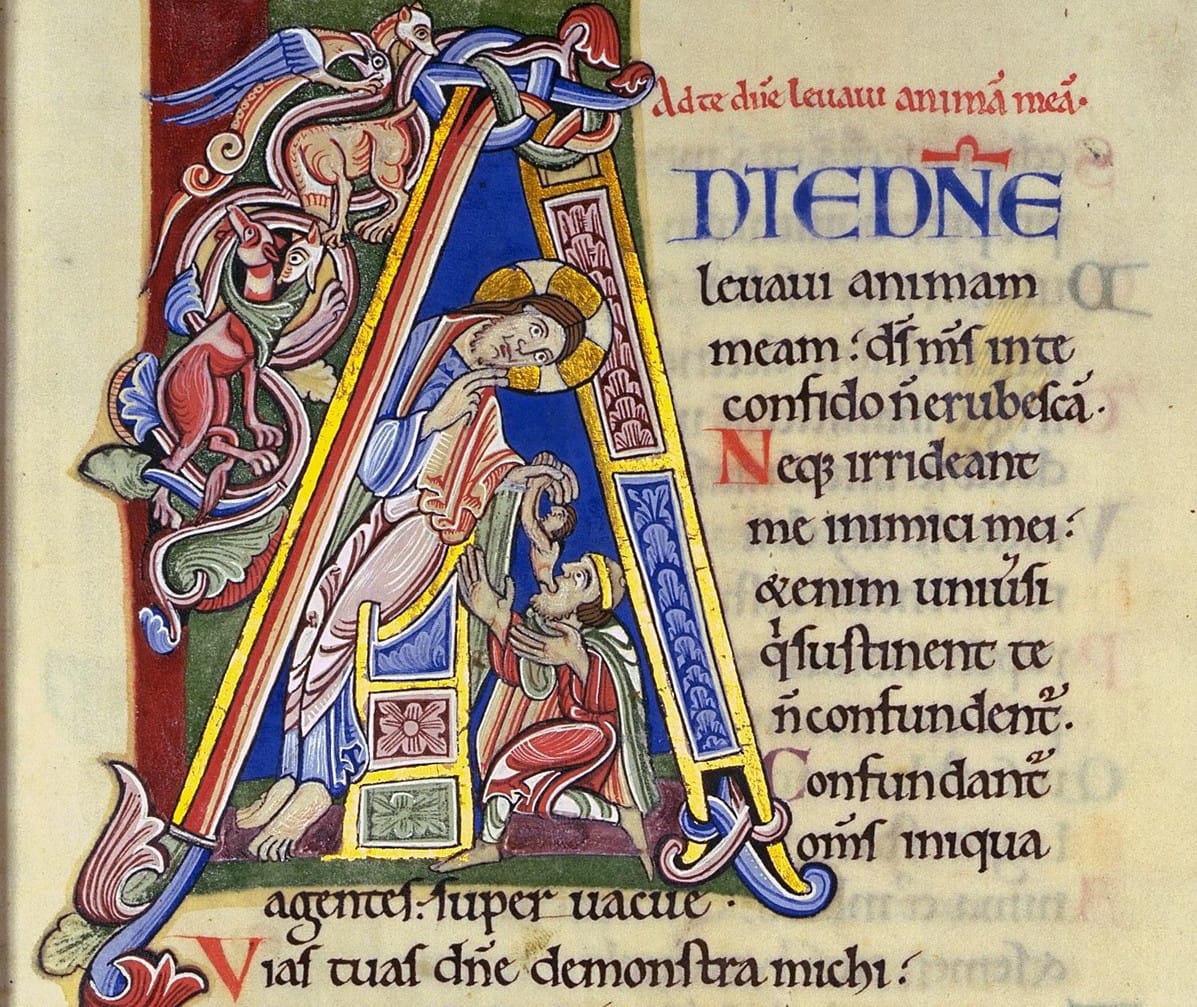 Ad te dñe leuaui animā meā.
AD TE DÑE
leuaui animam
meam: dſ̄ mſ̄ in te
confido ñ erubeſcā.
Neqꝫ irrideant
me inimici mei:
&enim uniűſi
qͥ ſuſtinent te
ñ confundent᷑.
Confundant᷑
om̄ſ iniqua
agenteſ: ſuper uacue.
Viaſ tuaſ dñe demonſtra michi: